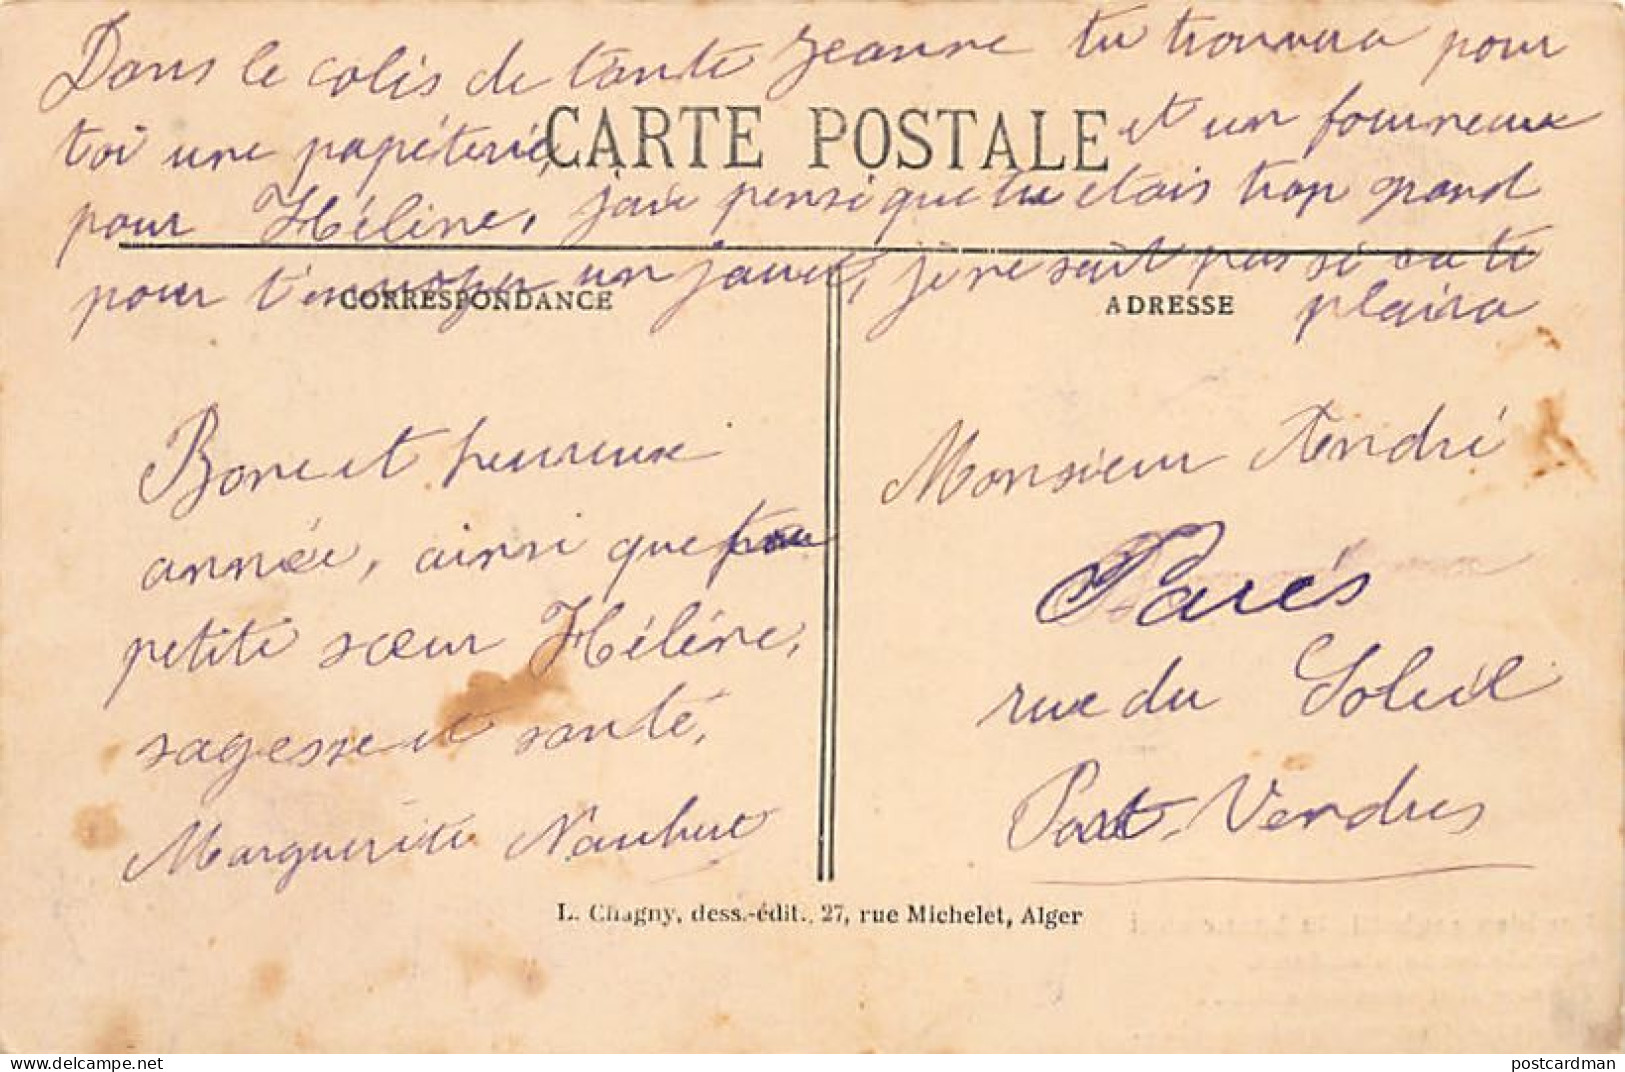 Dans le colis de tante Jeanne tu trouvera pour
toi une papéterie, et un fourneaux
CARTE POSTALE
pour Hélène, j'ai pensé que tu étais trop grand
pour t'envoyer un jouet, je ne sait pas si ca te
plaira
CORRESPONDANCE
ADRESSE
Bone et heureuse
année, ainsi que ta
petite sœur Hélène,
sagesse et santé,
Marguerite
Monsieur André
Parés
rue du Soleil
Port-Vendres
L. Chagny, dess.-édit., 27, rue Michelet, Alger
postcardman